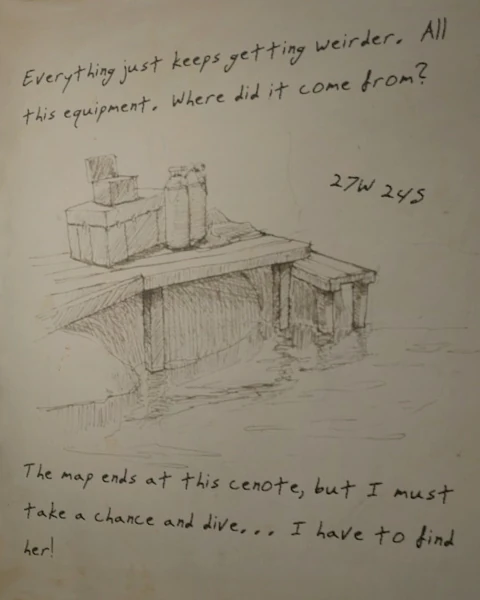 Everything just keeps getting weirder. All
this equipment. Where did it come from?
27W 24S
The map ends at this cenote, but I must
take a chance and dive... I have to find
her!